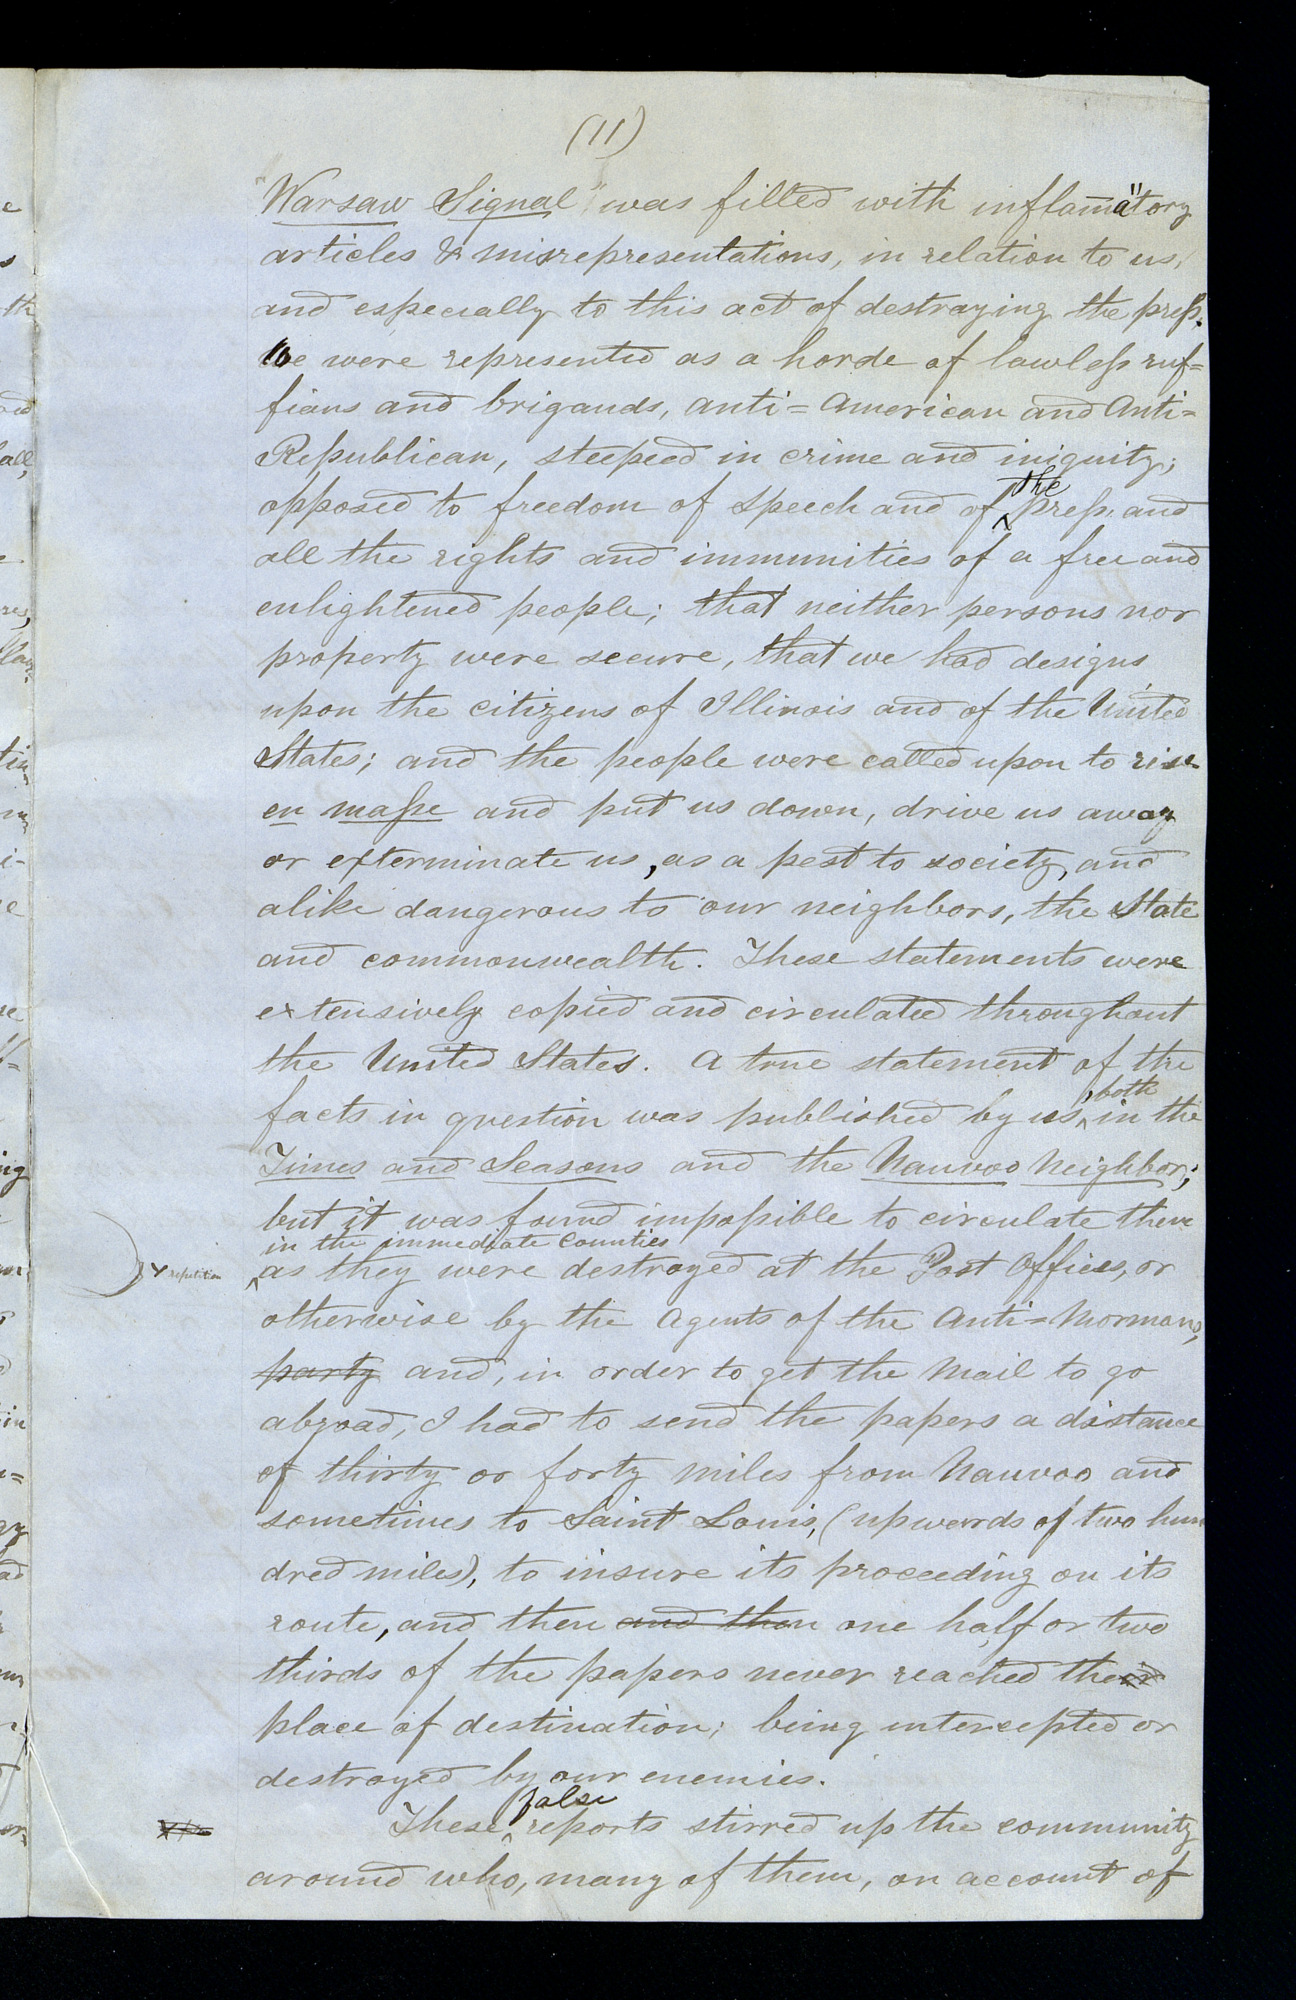 (11)
"Warsaw Signal" was filled with inflamatory
articles & misrepresentations, in relation to us,
and especially to this act of destroying the press.
We were represented as a horde of lawless ruf=
fians and brigands, anti=American and Anti=
Republican, steeped in crime and iniquity;
the
opposed to freedom of speech and of press, and
all the rights and immunities of a free and
enlightened people; that neither persons nor
property were secure, that we had designs
upon the citizens of Illinois and of the United
States; and the people were called upon to rise
en masse and put us down, drive us away
or exterminate us, as a pest to society, and
alike dangerous to our neighbors, the State
and commonwealth. These statements were
extensively copied and circulated throughout
the United States. A true statement of the
both
facts in question was published by us, in the
Times and Seasons and the Nauvoo Neighbor;
but it was found impossible to circulate them
in the immediate counties
repetition as they were destroyed at the Post Offices, or
otherwise by the agents of the Anti=Mormons,
party and, in order to get the mail to go
abroad, I had to send the papers a distance
of thirty or forty miles from Nauvoo and
sometimes to Saint Louis, (upwards of two hun
dred miles), to insure its proceeding on its
route, and then and then one half or two
thirds of the papers never reached their
place of destination; being intercepted or
destroyed by our enemies.
false
These reports stirred up the community
around who, many of them, on account of